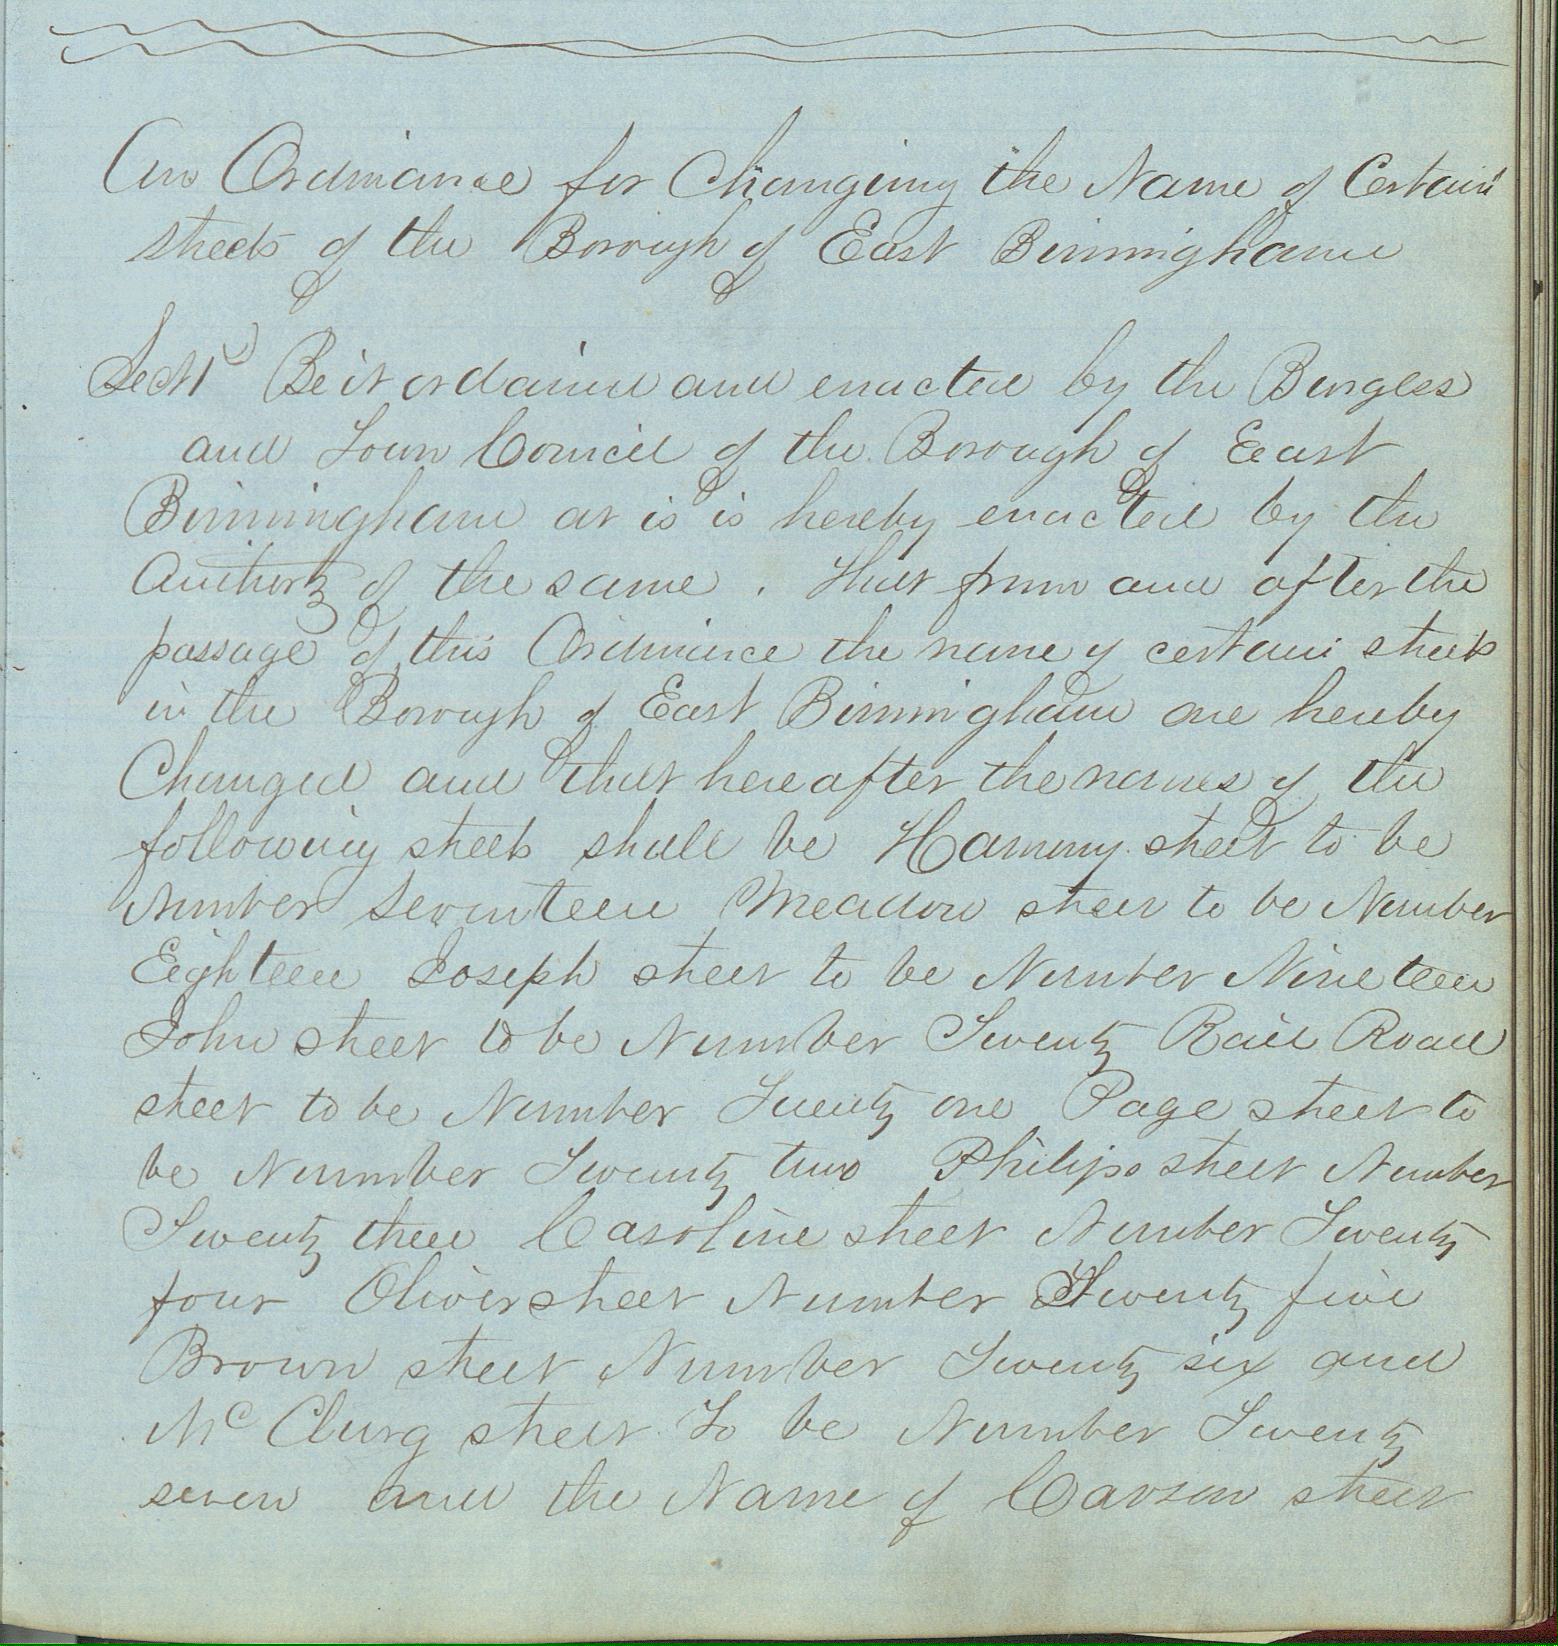 An Ordinance for Changeing the Name of Certain
streets of the Borough of East Birmingham
Sect 1 Be it ordained and enacted by the Burgess
and Town Council of the Borough of East
Birmingham at is is hereby enacted by the
Authorty of the same . That from and after the
passage of this Ordinance the name of certain streets
in the Borough of East Birmingham are hereby
Changed and that hereafter the names of the
following streets shall be Harmony street to be
Number Seventeen Meadow street to be Number
Eighteen Joseph street to be Number Nineteen
John street to be Number Twenty Rail Road
street to be Number Twenty one Page street to
be Number Twenty two Philips street Number
Twenty three Caroline street Number Twenty
four Oliver street Number Twenty five
Brown street Number Twenty six and
Mc Clurg street To be Number Twenty
seven and the Name of Carson street